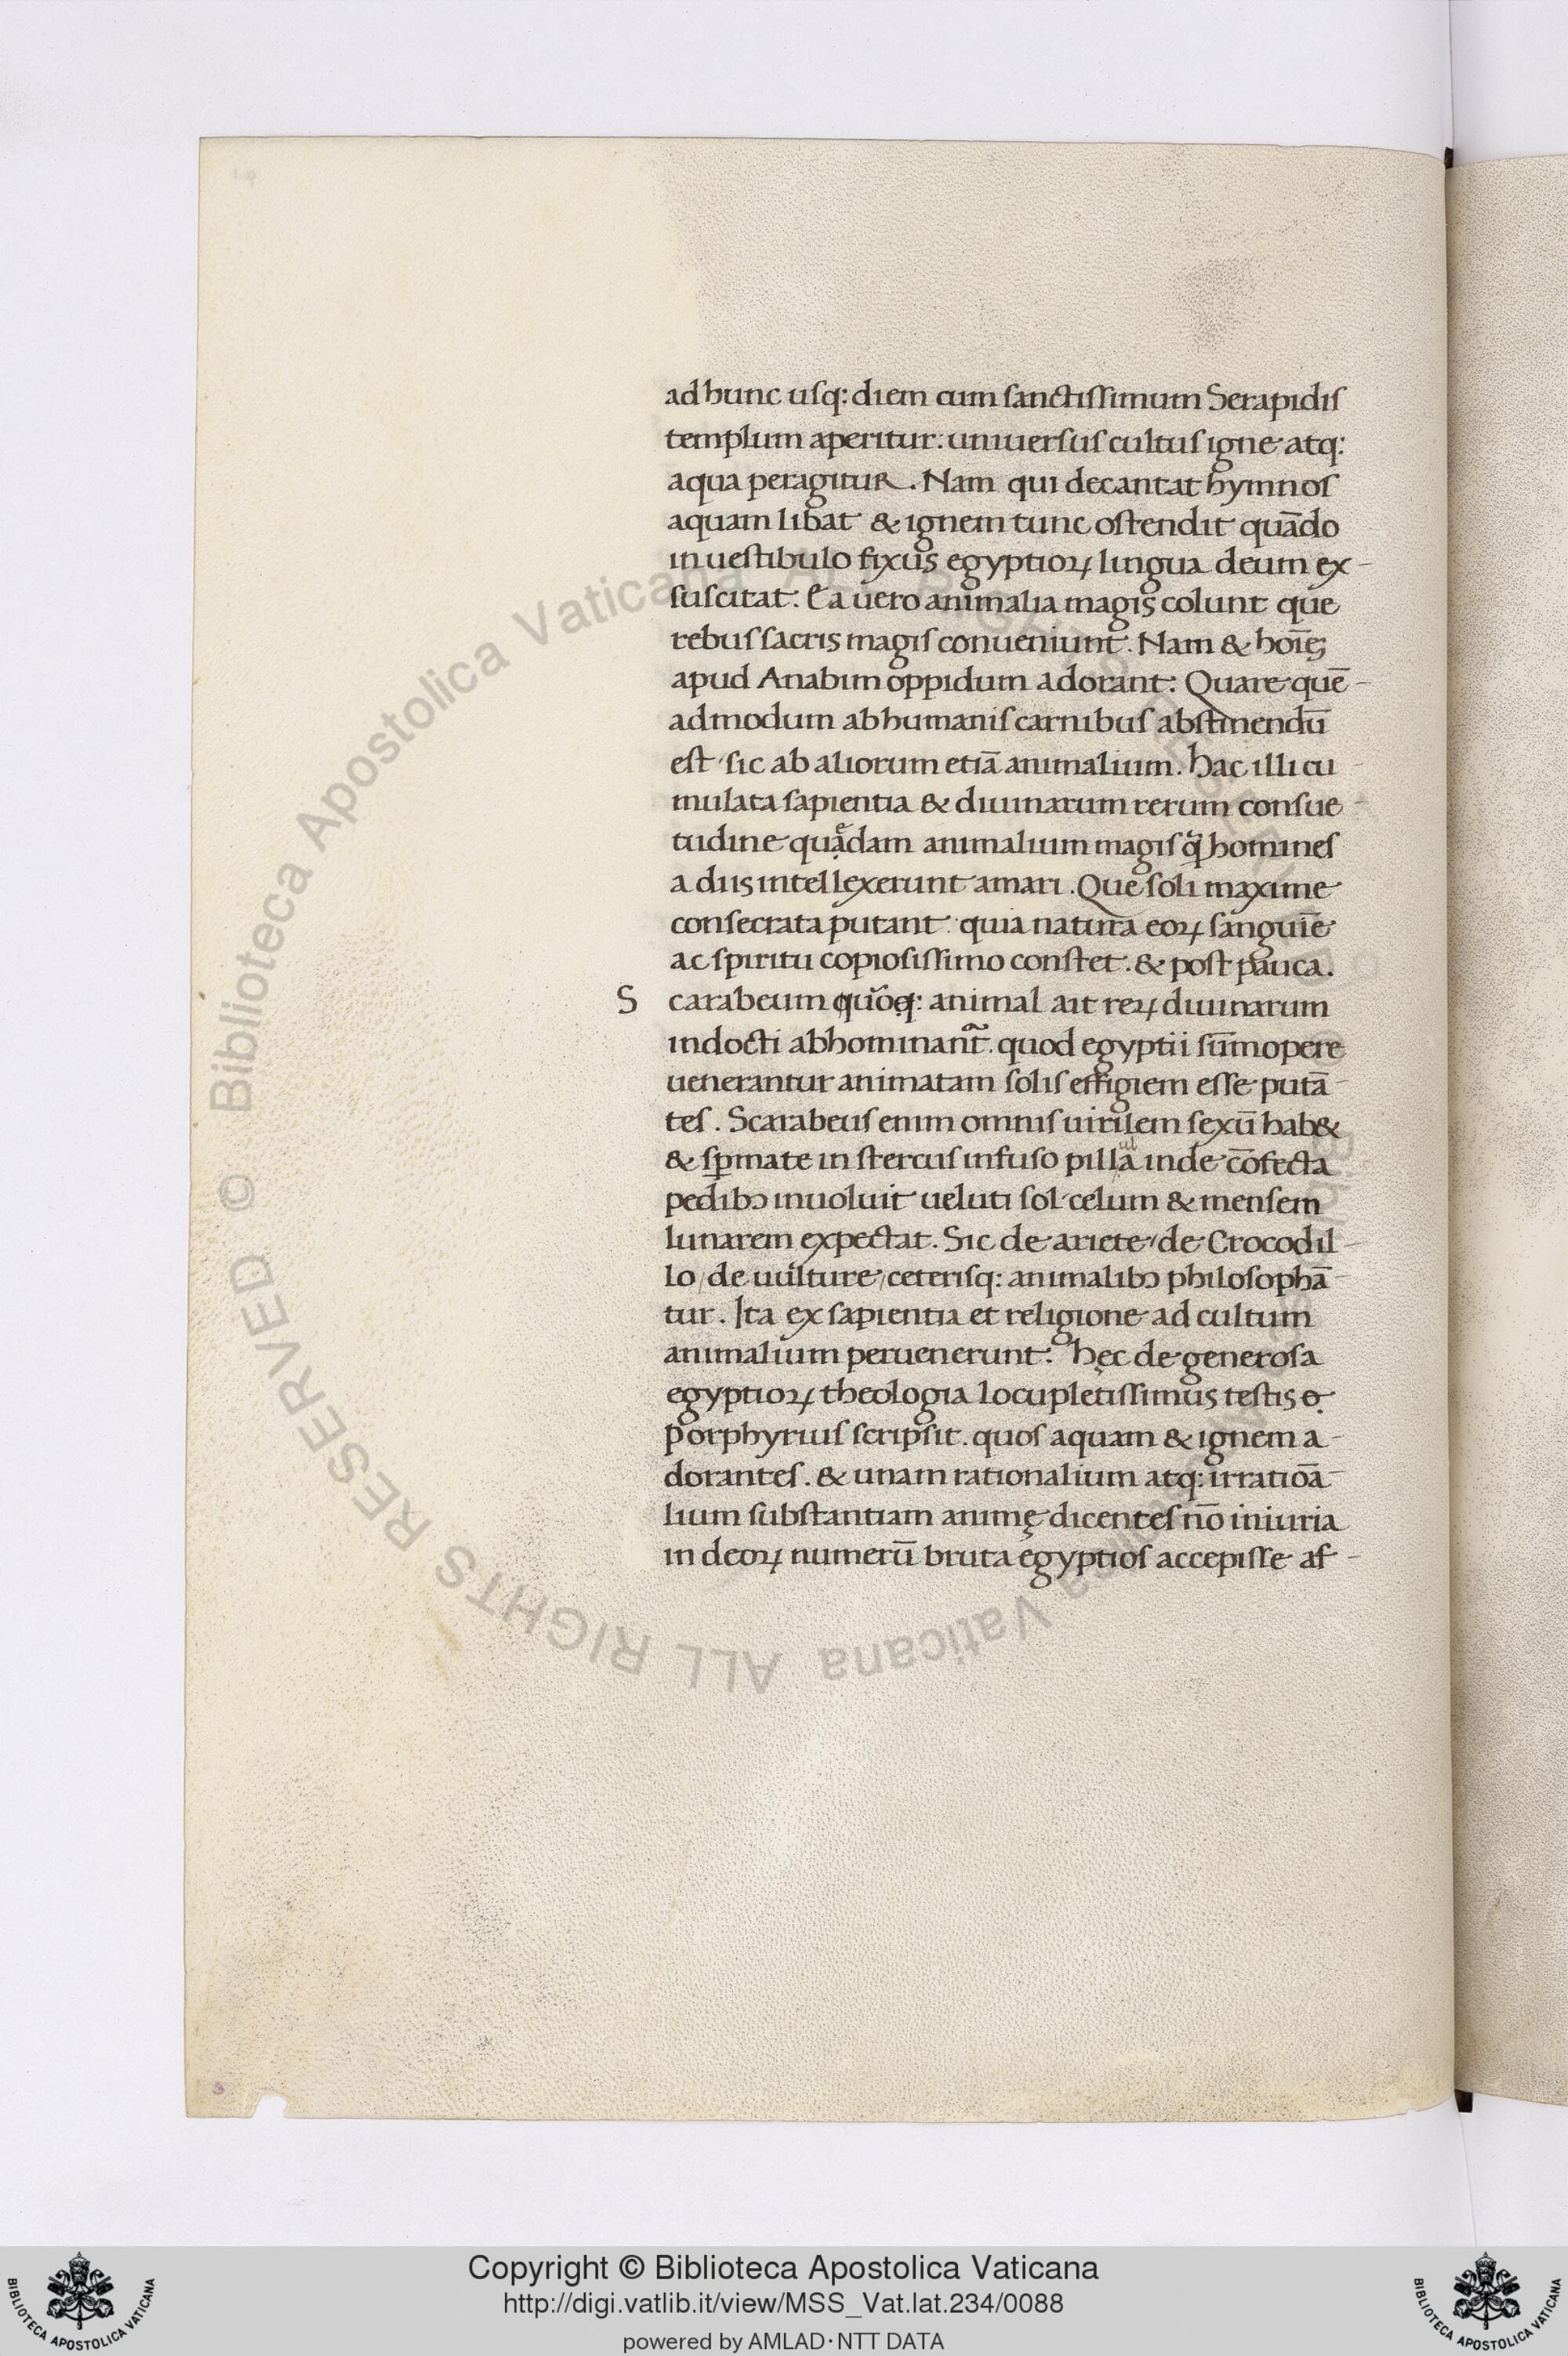 ad hunc usq: diem cum sanctissimum Serapidis
templum aperitur: uniuersus cultus igne atq:
aqua peragitur. Nam qui decantat hymnos
aquam libat & ignem tunc ostendit quādo
in uestibulo fixus egyptioꝝ lingua deum ex-
suscitat. Ea uero animalia magis colunt que
rebus sacris magis conueniunt. Nam & hoīes
apud Anabim oppidum adorant: Quare quē-
admodum ab humanis carnibus abstinendū
est sic ab aliorum etiā animalium. Hac illi cu-
mulata sapientia & diuinarum rerum consue-
tudine quędam animalium magis q̃ homines
a diis intellexerunt amari. Que soli maxime
consecrata putant quia natura eoꝝ sanguīe
ac spiritu copiosissimo constet. & post pauca.
Scarabeum quoq: animal ait reꝝ diuinarum
indocti abhominant̃. quod egyptii sūmopere
uenerantur animatam solis effigiem esse putā-
tes. Scarabeus enim omnis uirilem sexū hab&
& sꝑmate in stercus infuso pillā inde cōfecta
pedibꝰ inuoluit ueluti sol celum & mensem
lunarem expectat. Sic de ariete/de Crocodil-
lo/de uulture/ceterisq: animalibꝰ philosophā-
tur. Ita ex sapientia et religione ad cultum
animalium peruenerunt. Hęc de generosa
egyptioꝝ theologia locupletissimus testis
Porphyrius scripsit. quos aquam & ignem a-
dorantes. & unam rationalium atq: irratioā-
lium substantiam animę dicentes nō iniuria
in deoꝝ numerū bruta egyptios accepisse af-
Copyright © Biblioteca Apostolica Vaticana
http://digi.vatlib.it/view/MSS_Vat.lat.234/0088
powered by AMLAD·NTT DATA
BIBLIOTECA APOSTOLICA VATICANA
BIBLIOTECA APOSTOLICA VATICANA
© Biblioteca Apostolica Vaticana ALL RIGHTS RESERVED © Biblioteca Apostolica Vaticana ALL RIGHTS RESERVED